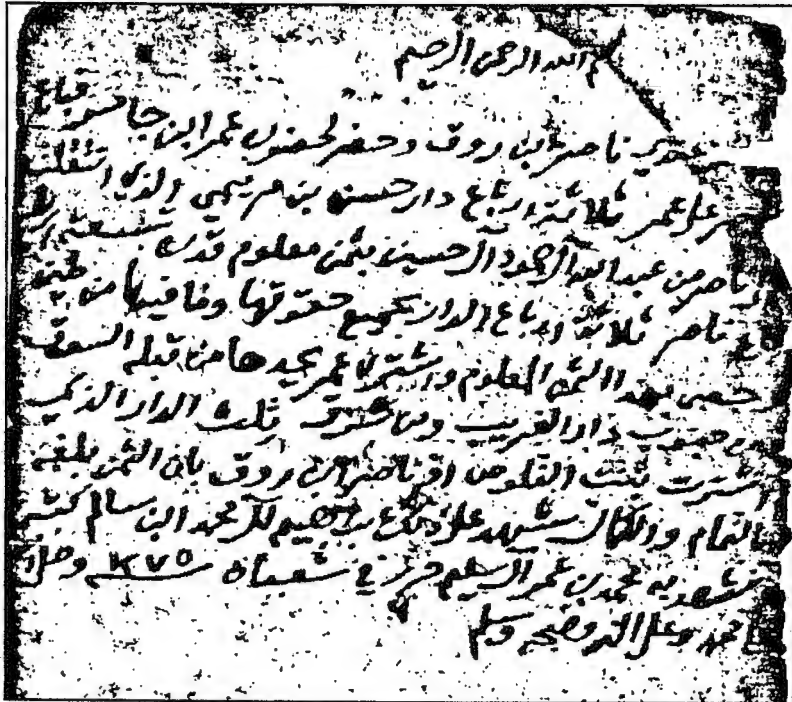 بسم الله الرحمن الرحيم
ناصر ابن روق وحضر لحضوره عمر ابن جاسر فباع
ناصر على عمر ثلاثة ارباع دار حسن بن عريمي الذي انتقلت
الى ناصر من عبدالله آل حمود آل حسين بثمن معلوم قدره
باع ناصر ثلاثة ارباع الدار بجميع حقوقها وما فيها من
بهذا الثمن المعلوم واشترى عمر يحيدها من قبله السوق
ومن جنوب دار الغريب ومن شرق ثلث الدار الذي
اشترت بنت القلوص اقر ناصر ابن روق بان الثمن بلغه
بالتمام والكمال شهد على ذلك ابراهيم آل محمد ابن سالم كتبه
وشهد به محمد بن عمر آل سليم حرر في شعبان ١٢٧٥ وصلى الله
على محمد وعلى اله وصحبه وسلم